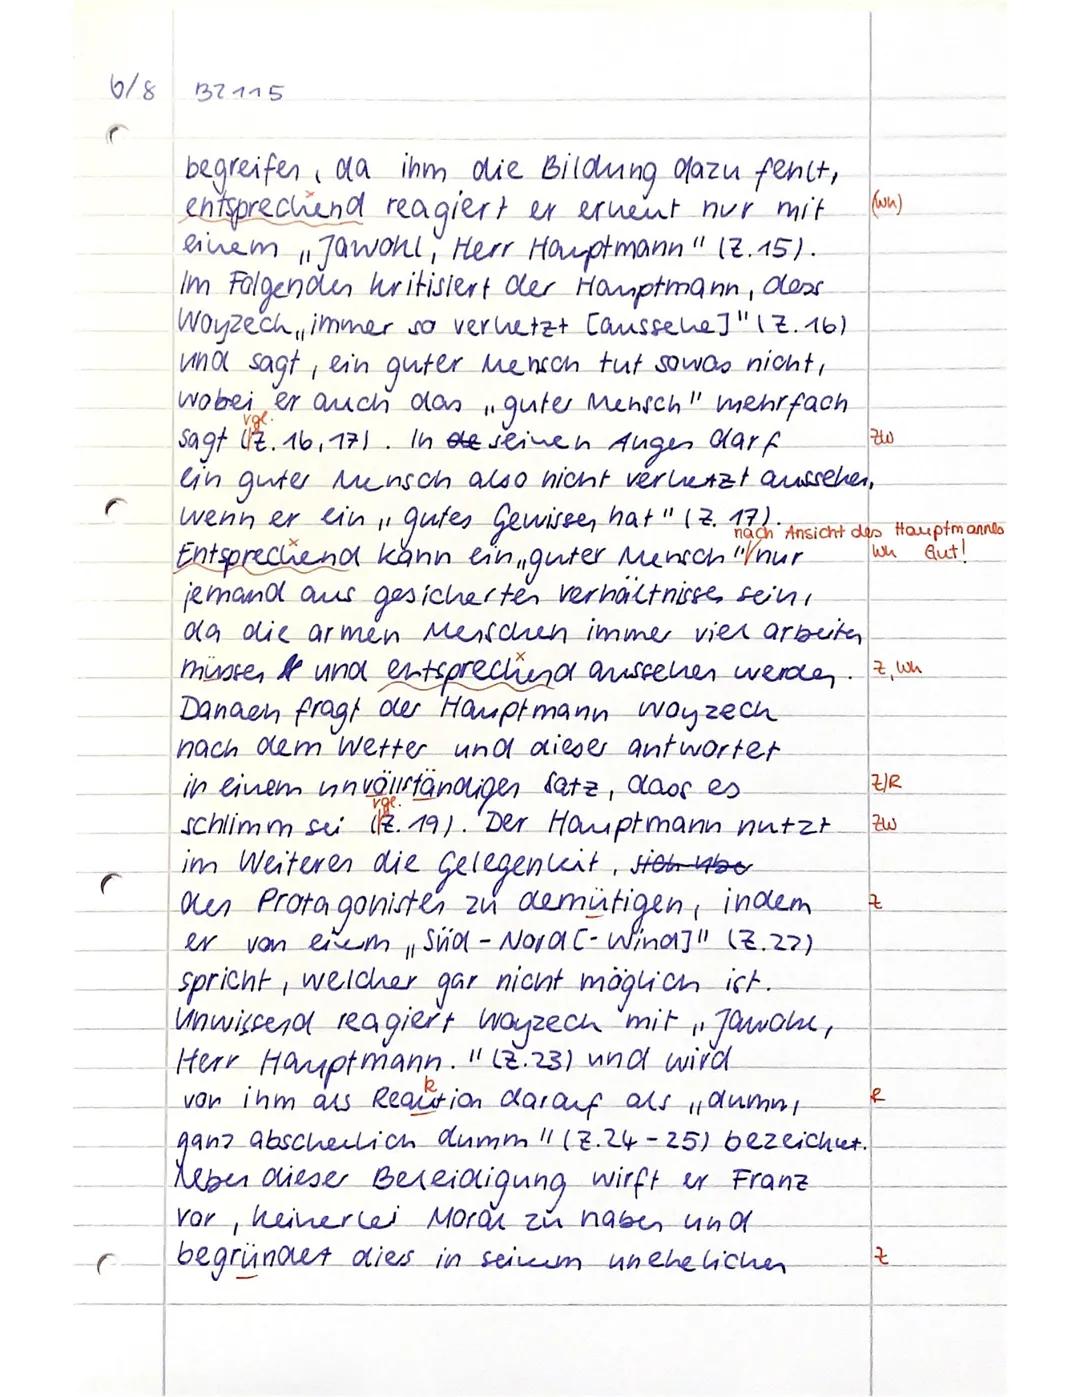 6/8 BZ115
begreifen, da ihm die Bildung dazu fehlt,
entsprechend reagiert er erneut nur mit (Wh)
einem „Jawohl, Herr Hauptmann" (Z.15).
Im Folgenden kritisiert der Hauptmann, dass
Woyzeck „immer so verhetzt [aussehe]" (Z.16)
und sagt, ein guter Mensch tut sowas nicht,
wobei er auch das „guter Mensch" mehrfach
vgl.
sagt (Z.16,17). In de seinen Augen darf ZW
ein guter Mensch also nicht verhetzt aussehen,
wenn er ein „gutes Gewissen hat" (Z. 17).
nach Ansicht des Hauptmannes
Entsprechend kann ein „guter Mensch" nur Wh Gut!
jemand aus gesicherten Verhältnissen sein,
da die armen Menschen immer viel arbeiten
müssen und entsprechend aussehen werden. Z, Wh
Danach fragt der Hauptmann Woyzeck
nach dem Wetter und dieser antwortet
in einem unvöllständigen Satz, dass es Z/R
vgl.
schlimm sei (Z.19). Der Hauptmann nutzt ZW
im Weiteren die Gelegenheit, sich übe
den Protagonisten zu demütigen, indem Z
er von einem „Süd-Nord[-Wind]" (Z.22)
spricht, welcher gar nicht möglich ist.
Unwissend reagiert Woyzeck mit „Jawohl,
Herr Hauptmann." (Z.23) und wird
k
von ihm als Reaution darauf als „dumm, R
ganz abscheulich dumm" (Z.24-25) bezeichnet.
Neben dieser Beleidigung wirft er Franz
vor, keinerlei Moral zu haben und
begründet dies in seinem unehelichen Z